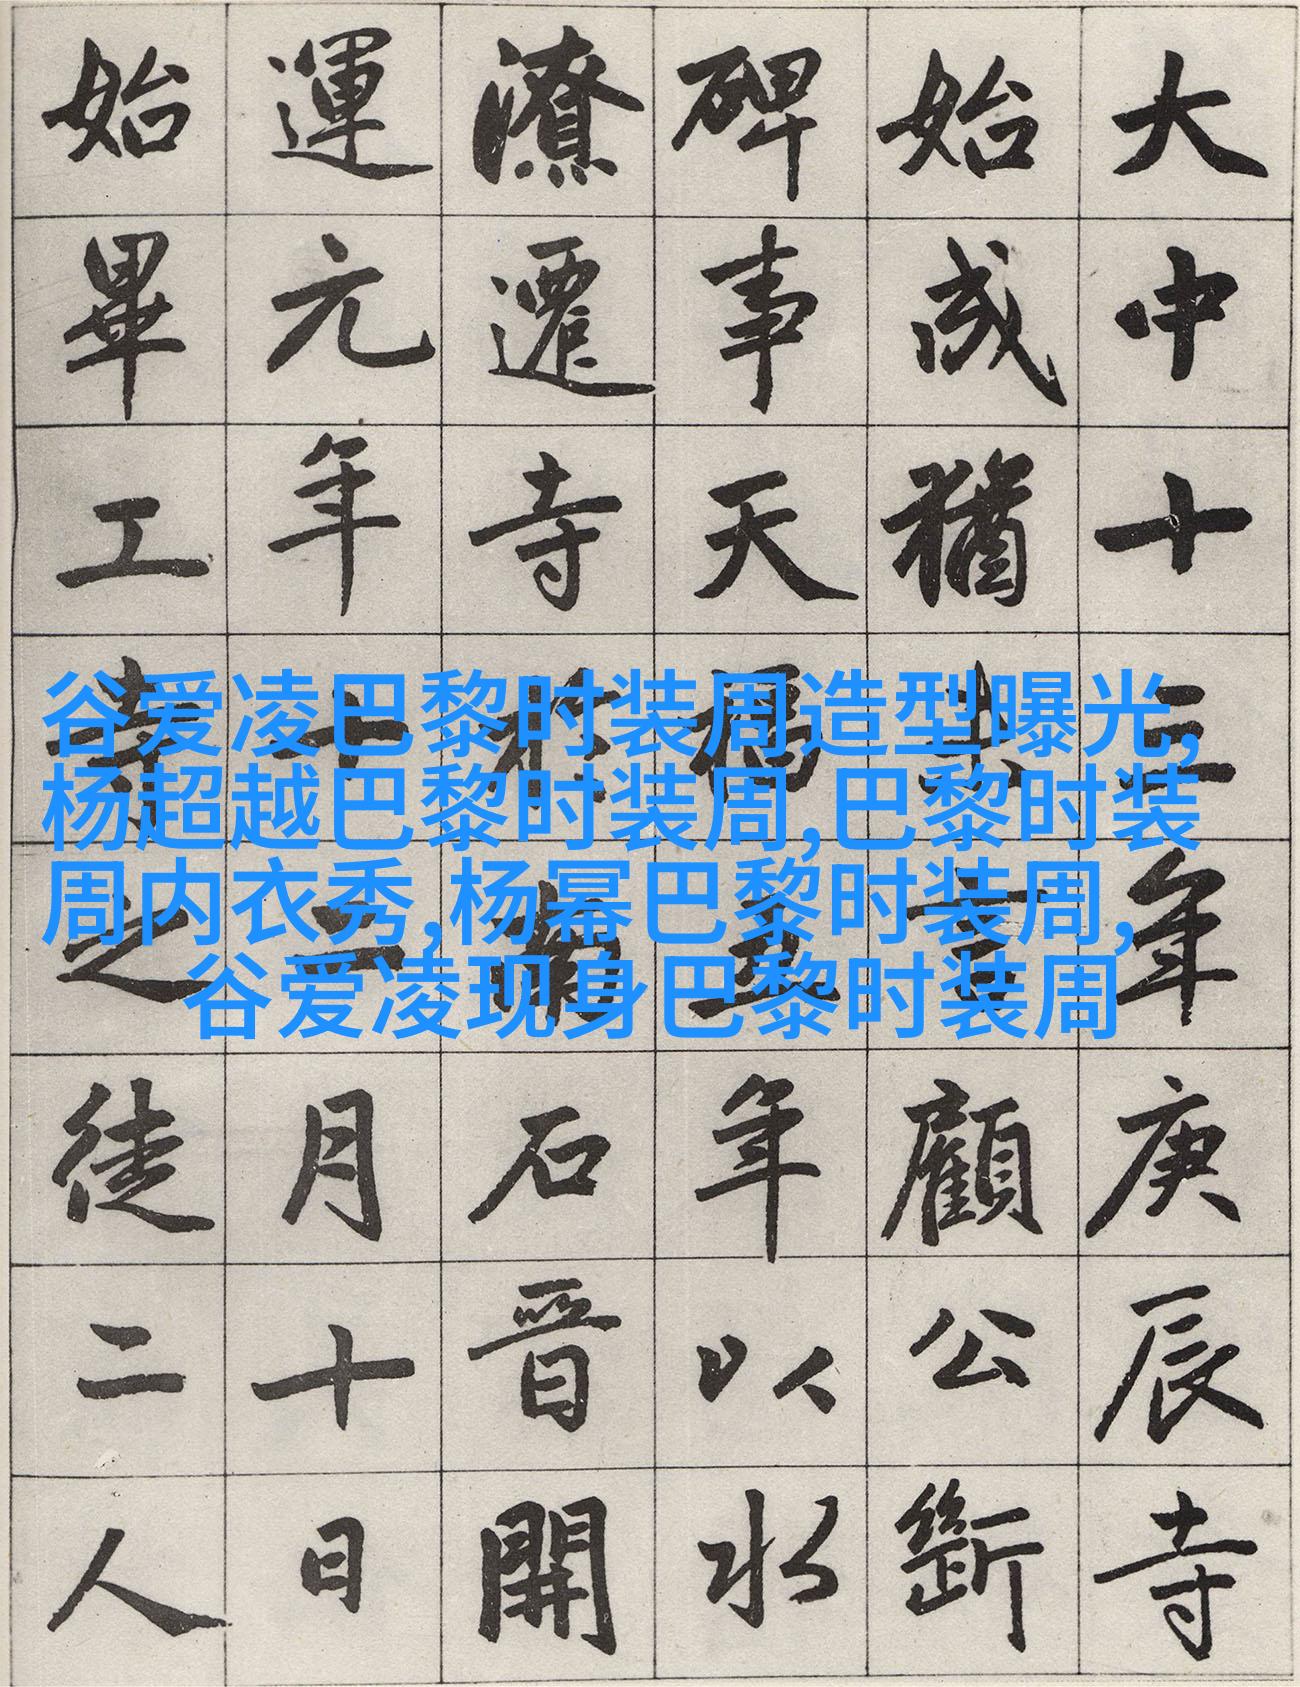 大中十三年庚辰寺
始成猶共言顧公斷
碑事天福五年以水
潦遷寺於南石晉開
運元年十二月十日
始畢工寺之徒二人
谷爱凌巴黎时装周造型曝光,
杨超越巴黎时装周,巴黎时装
周内衣秀,杨幂巴黎时装周,
谷爱凌现身巴黎时装周